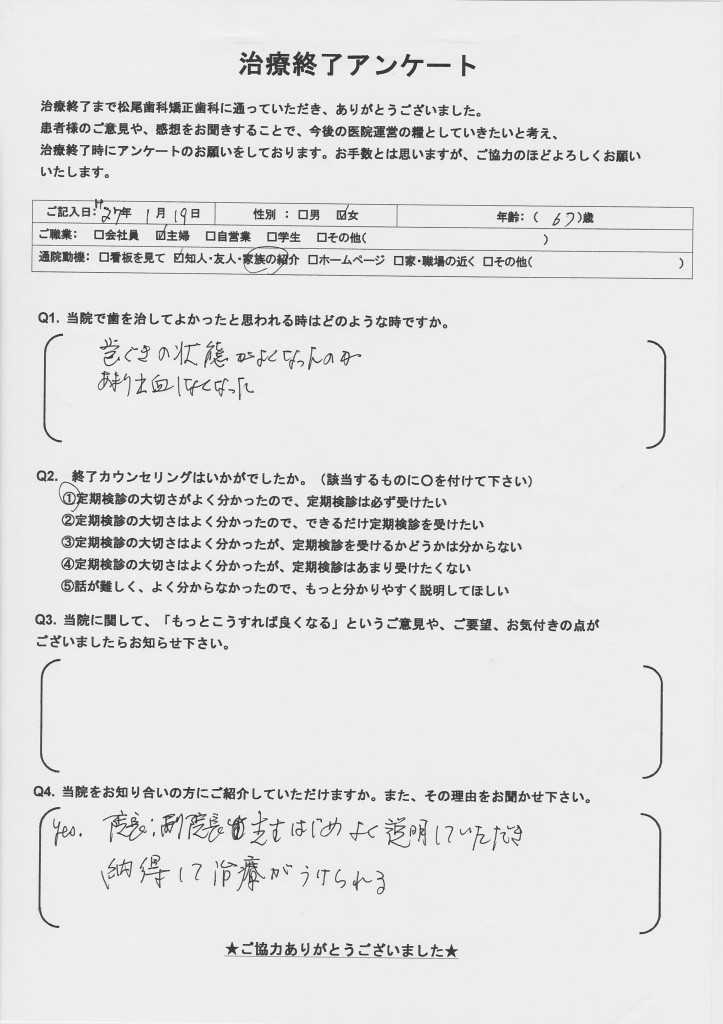 治療終了アンケート
治療終了まで松尾歯科矯正歯科に通っていただき、ありがとうございました。
患者様のご意見や、感想をお聞きすることで、今後の医院運営の糧としていきたいと考え、
治療終了時にアンケートのお願いをしております。お手数とは思いますが、ご協力のほどよろしくお願い
いたします。
ご記入日:H27年 1月19日 性別 : □男 ☑女 年齢:( 67)歳
ご職業: □会社員 ☑主婦 □自営業 □学生 □その他( )
通院動機: □看板を見て ☑知人・友人・家族の紹介 □ホームページ □家・職場の近く □その他( )
Q1. 当院で歯を治してよかったと思われる時はどのような時ですか。
歯ぐきの状態がよくなったのか
あまり出血しなくなった
Q2. 終了カウンセリングはいかがでしたか。(該当するものに〇を付けて下さい)
①定期検診の大切さがよく分かったので、定期検診は必ず受けたい
②定期検診の大切さはよく分かったので、できるだけ定期検診を受けたい
③定期検診の大切さはよく分かったが、定期検診を受けるかどうかは分からない
④定期検診の大切さはよく分かったが、定期検診はあまり受けたくない
⑤話が難しく、よく分からなかったので、もっと分かりやすく説明してほしい
Q3. 当院に関して、「もっとこうすれば良くなる」というご意見や、ご要望、お気付きの点が
ございましたらお知らせ下さい。
Q4. 当院をお知り合いの方にご紹介していただけますか。また、その理由をお聞かせ下さい。
Yes. 院長、副院長先生はじめよく説明していただき
納得して治療がうけられる
★ご協力ありがとうございました★